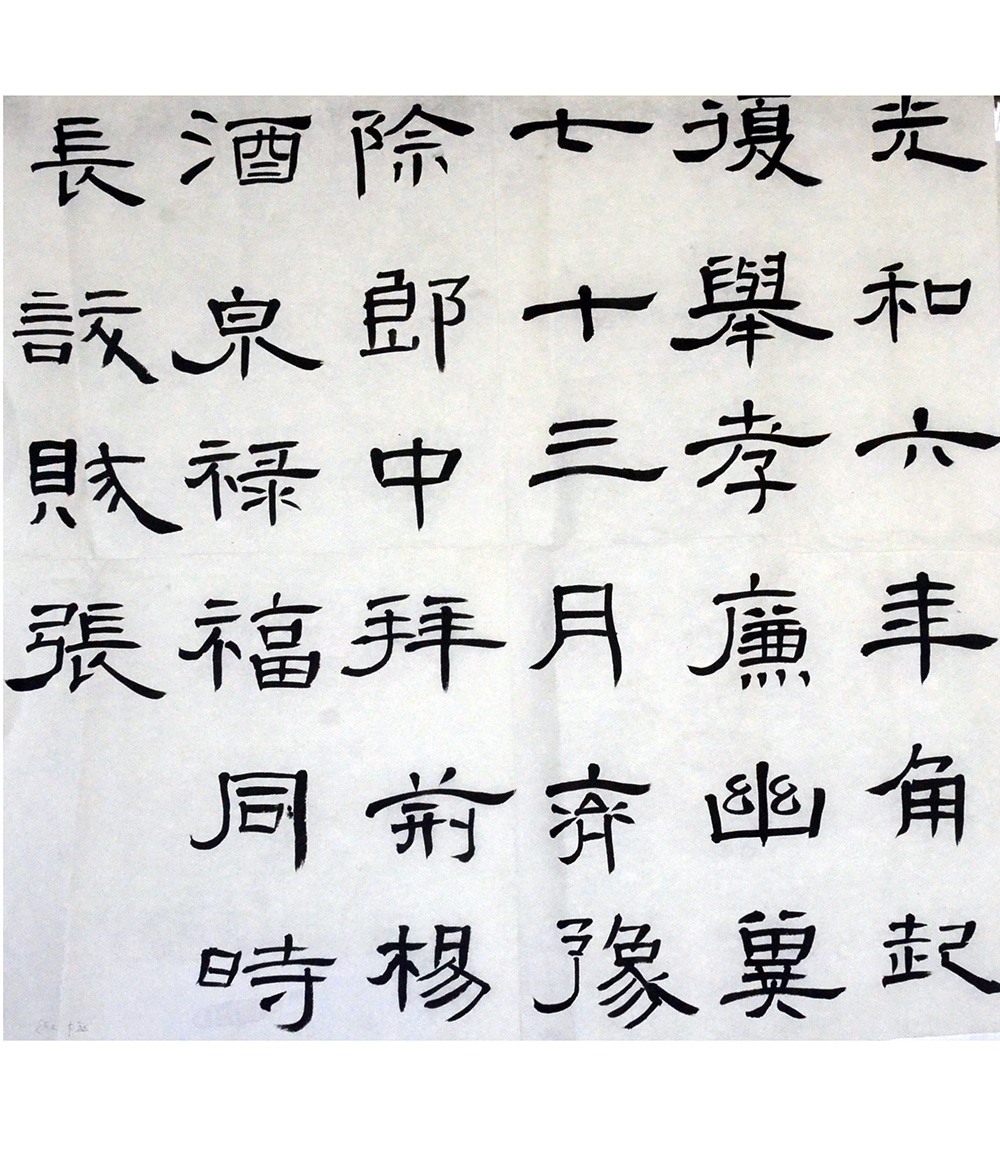 光和六年角起
復舉孝廉幽冀
七十三月兗豫
除郎中拜荊楊
酒泉祿福同時
長訞賊張